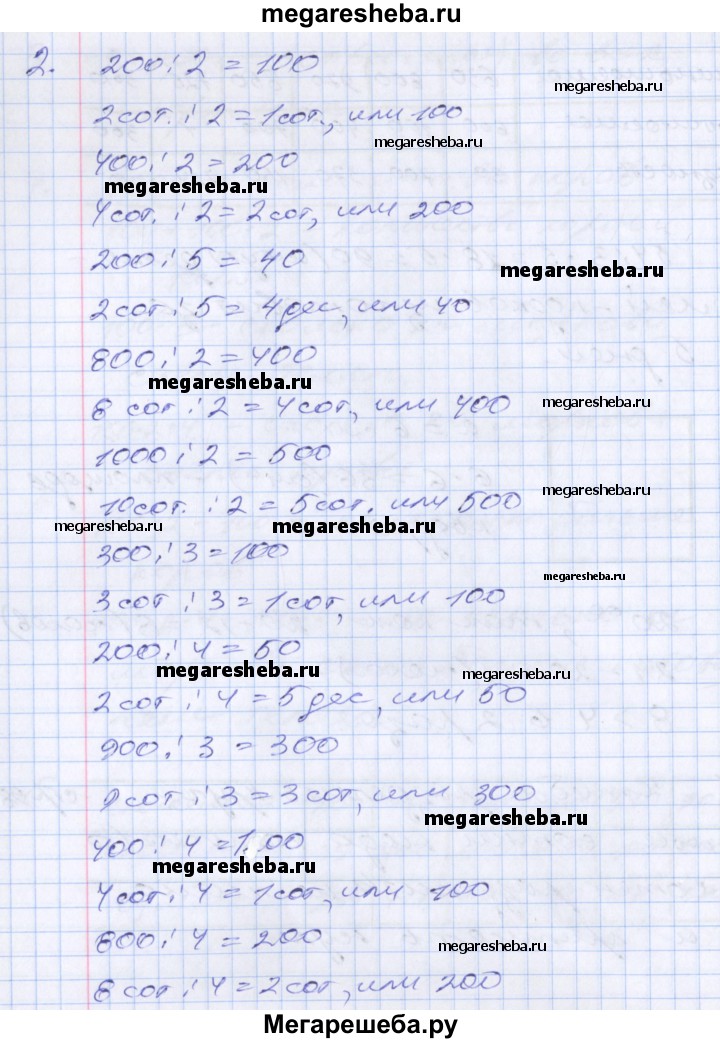 megaresheba.ru
2. 200 : 2 = 100
megaresheba.ru
2 сот. : 2 = 1 сот., или 100
megaresheba.ru
400 : 2 = 200
megaresheba.ru
4 сот. : 2 = 2 сот, или 200
200 : 5 = 40
megaresheba.ru
2 сот : 5 = 4 дес, или 40
800 : 2 = 400
megaresheba.ru
8 сот : 2 = 4 сот., или 400
megaresheba.ru
1000 : 2 = 500
megaresheba.ru
10 сот. : 2 = 5 сот. или 500
megaresheba.ru
megaresheba.ru
300 : 3 = 100
megaresheba.ru
3 сот : 3 = 1 сот, или 100
200 : 4 = 50
megaresheba.ru
megaresheba.ru
2 сот : 4 = 5 дес, или 50
900 : 3 = 300
9 сот : 3 = 3 сот, или 300
megaresheba.ru
400 : 4 = 100
megaresheba.ru
4 сот : 4 = 1 сот, или 100
800 : 4 = 200
megaresheba.ru
8 сот : 4 = 2 сот, или 200
Мегарешеба.ру